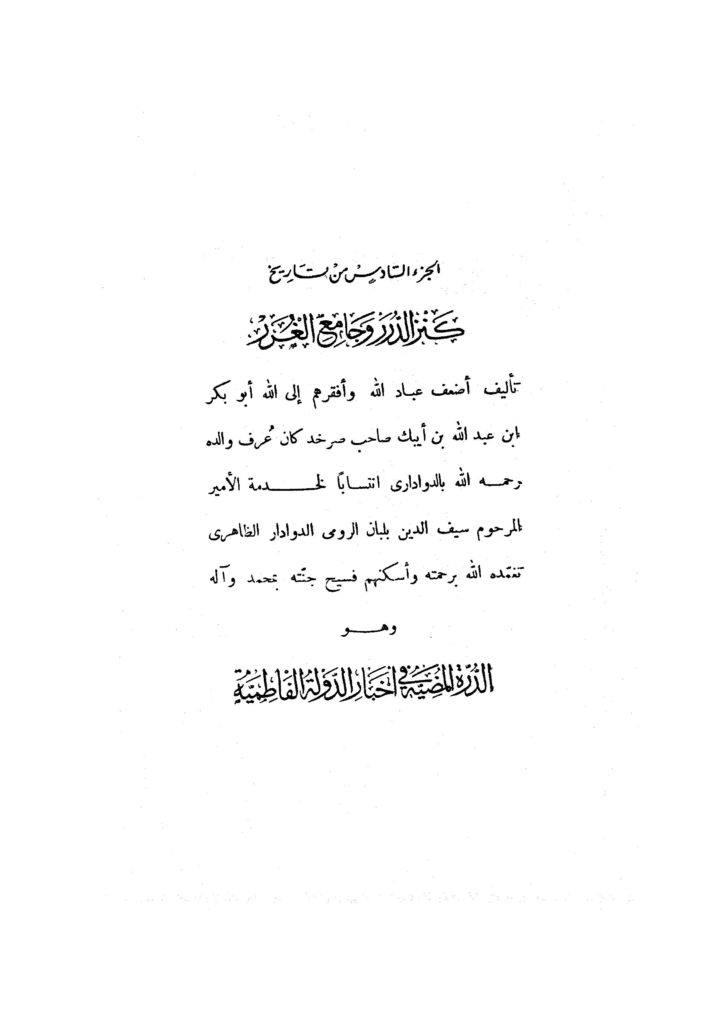 الجزء السادس من تاريخ
كنز الدرر وجامع الغرر
تأليف أضعف عباد الله وأفقرهم إلى الله أبو بكر
ابن عبد الله بن أيبك صاحب صرخد كان عُرف والده
رحمـه الله بالدوادارى انتسابًا لخدمة الأمير
المرحوم سيف الدين بلبان الرومى الدوادار الظاهرى
تغمّده الله برحمته وأسكنهم فسيح جنّته بمحمد وآله
وهـو
الدرة المضية فى أخبار الدولة الفاطمية